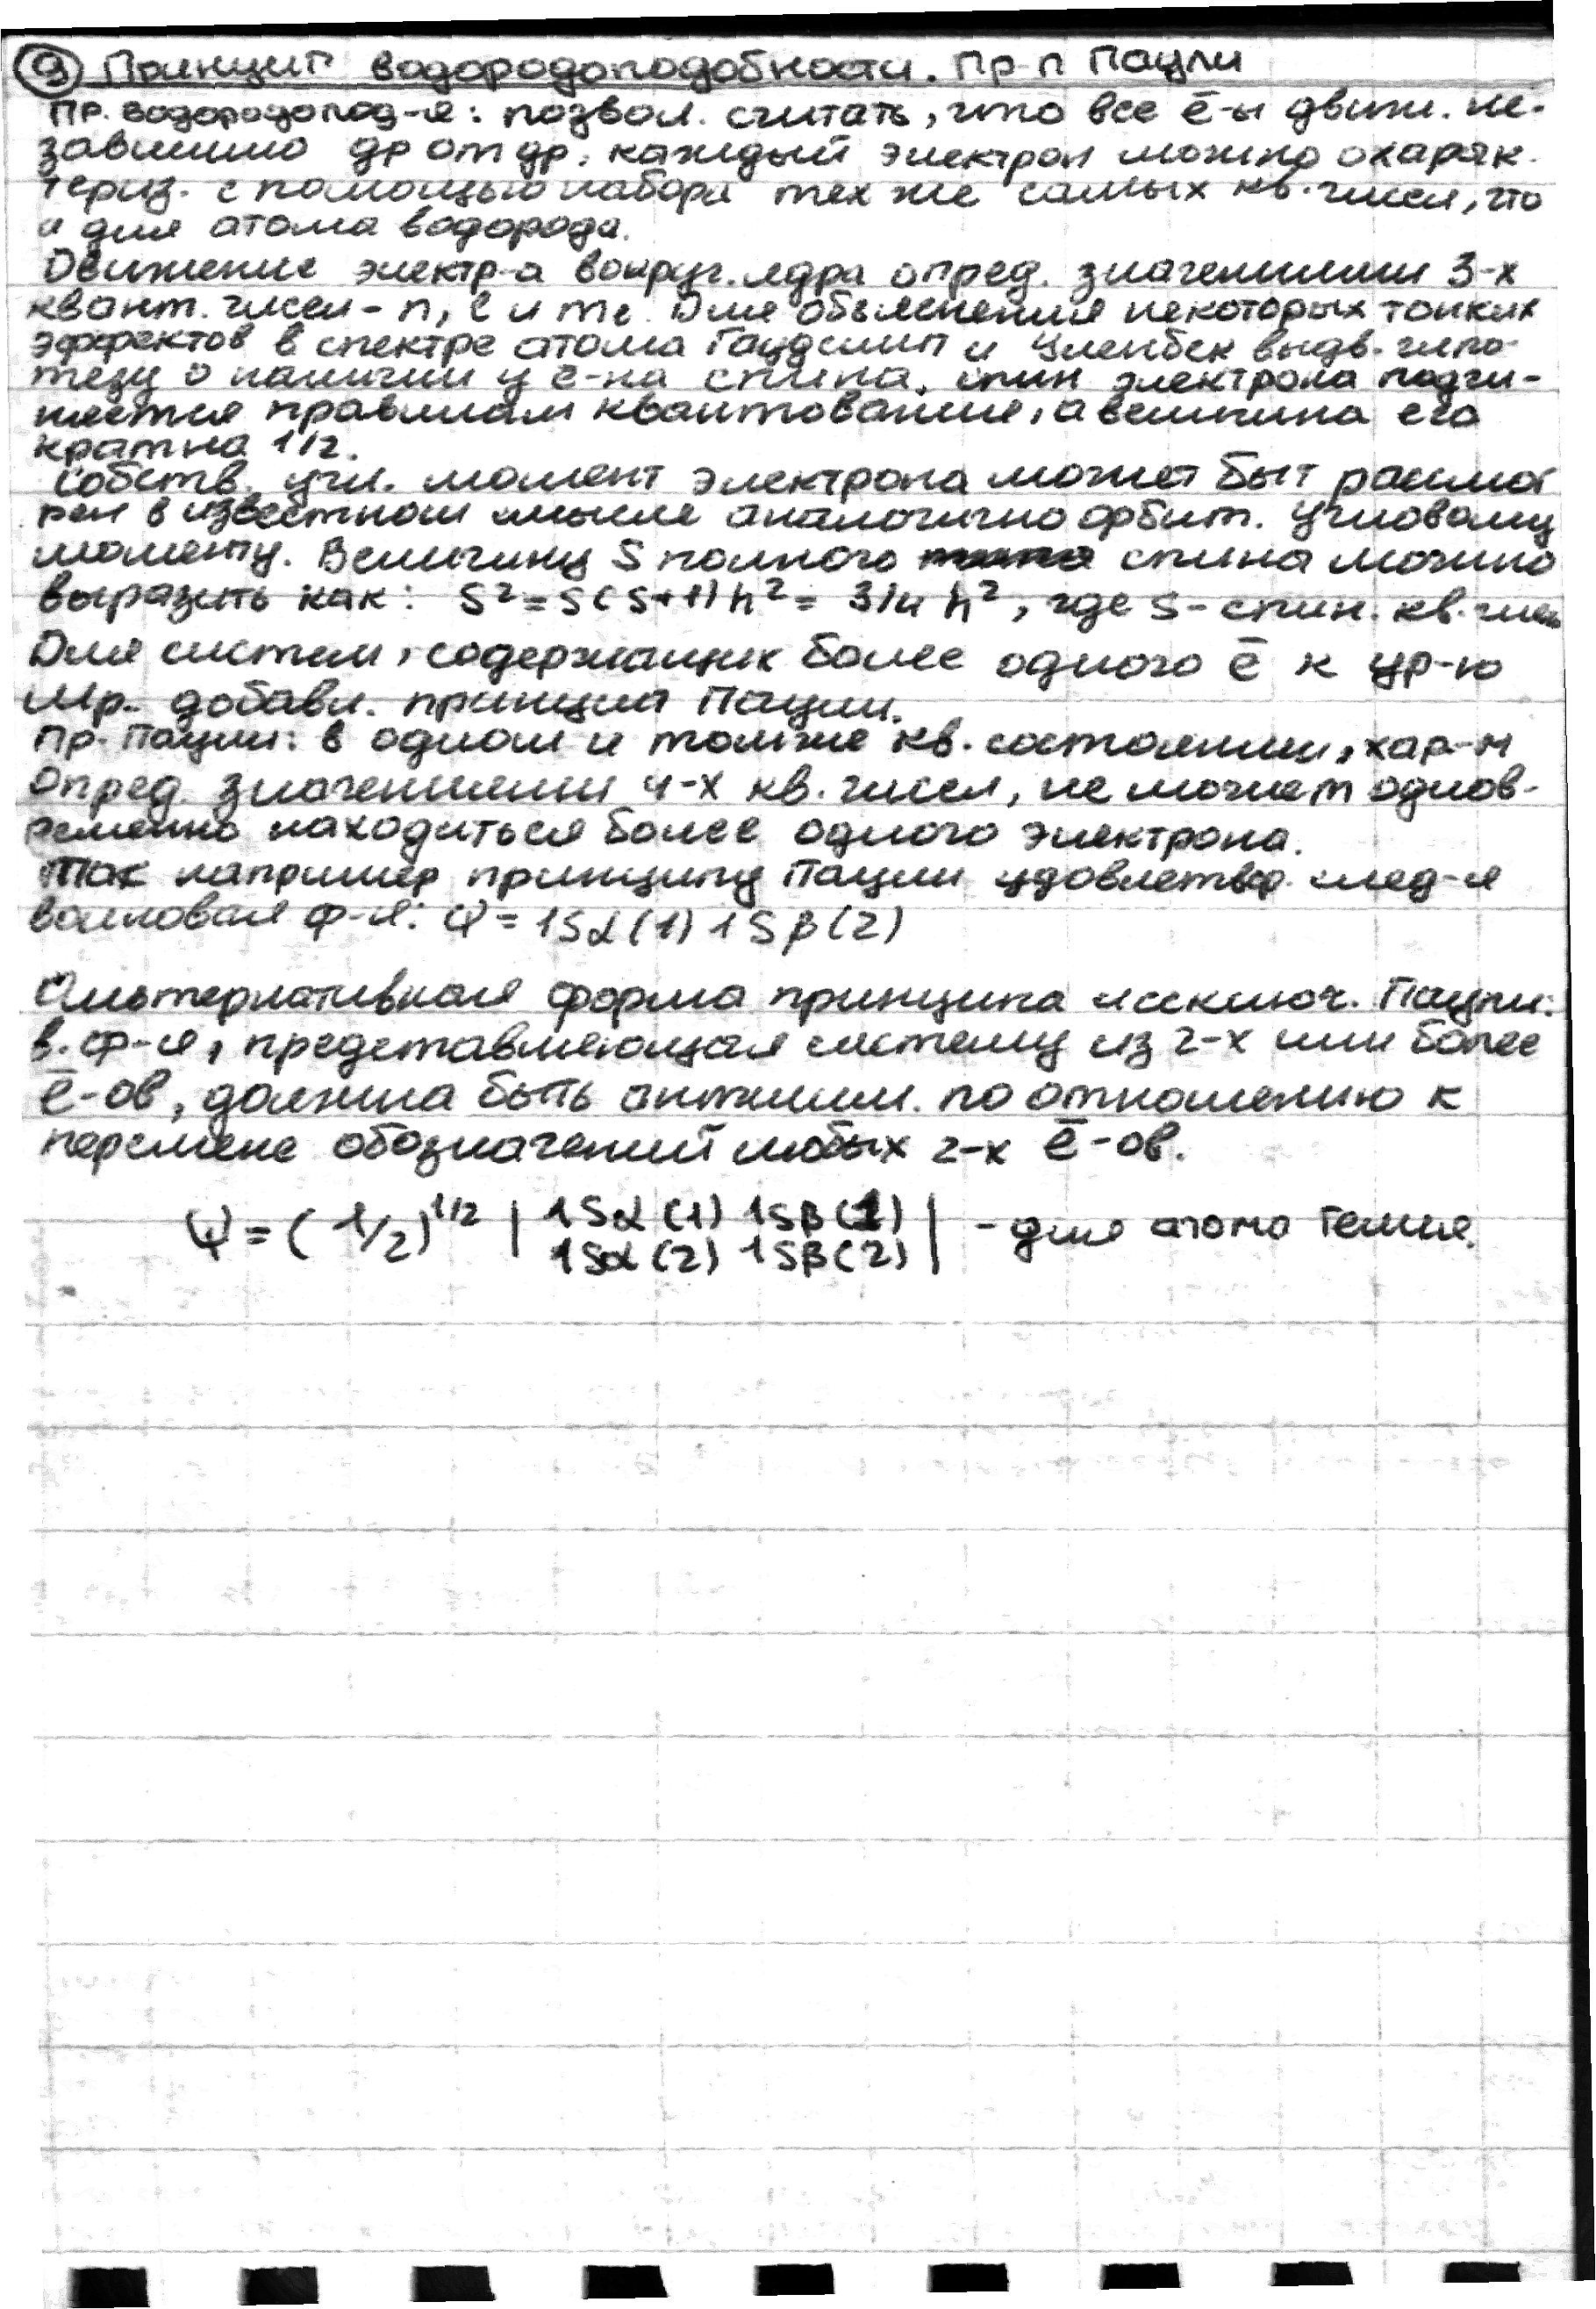 9 Принцип водородоподобности. Пр-п Паули
Пр. водородопод-я: позвол. считать, что все ē-ы движ. не-
зависимо др от др, каждый электрон можно охарак-
териз. с помощью набора тех же самых кв. чисел, что
и для атома водорода.
Движение электр-а вокруг. ядра опред. значениями 3-х
квант. чисел - n, l и me. Для объяснения некоторых тонких
эффектов в спектре атома Гаудсмит и Уленбек выдв. гипо-
тезу о наличии у ē-на спина. спин электрона подчи-
няется правилам квантования, а величина его
кратна 1/2.
Собств. угл. момент электрона может быт рассмот
рен в известном смысле аналогично орбит. угловому
моменту. Величину S полного спина можно
выразить как: S² = S(S+1)ħ² = 3/4 ħ², где s - спин. кв. число
Для систем, содержащих более одного ē к ур-ю
Шр. добавл. принцип Паули.
Пр. Паули: в одном и том же кв. состоянии, хар-м
опред. значениями 4-х кв. чисел, не может однов-
ременно находиться более одного электрона.
Так например принципу Паули удовлетвор. след-я
волновая ф-я: Ψ = 1Sα(1) 1Sβ(2)
Альтернативная форма принципа исключ. Паули:
в. ф-я, представляющая систему из 2-х или более
ē-ов, должна быть антисим. по отношению к
перемене обозначений любых 2-х ē-ов.
Ψ = (1/2)^1/2 | 1Sα(1) 1Sβ(1) | - для атома Гелия.
1Sα(2) 1Sβ(2)